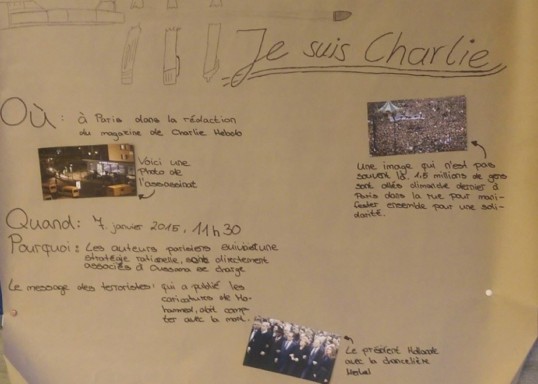 Je suis Charlie
Où: à Paris dans la rédaction
du magazine de Charlie Hebdo
Voici une
Photo de
l'assassinat
Une image qui n'est pas
souvent là. 1,5 millions de gens
sont allés dimanche dernier à
Paris dans la rue pour mani-
fester ensemble pour une soli-
darité.
Quand: 7. janvier 2015, 11h30
Pourquoi: Les auteurs parisiens suivait une
stratégie rationelle, sont directement
associés à Oussama se charge
Le message des terroristes: qui a publié les
caricatures de Mo-
hammed, doit comp-
ter avec la mort.
Le président Hollande
avec la chancelière
Merkel